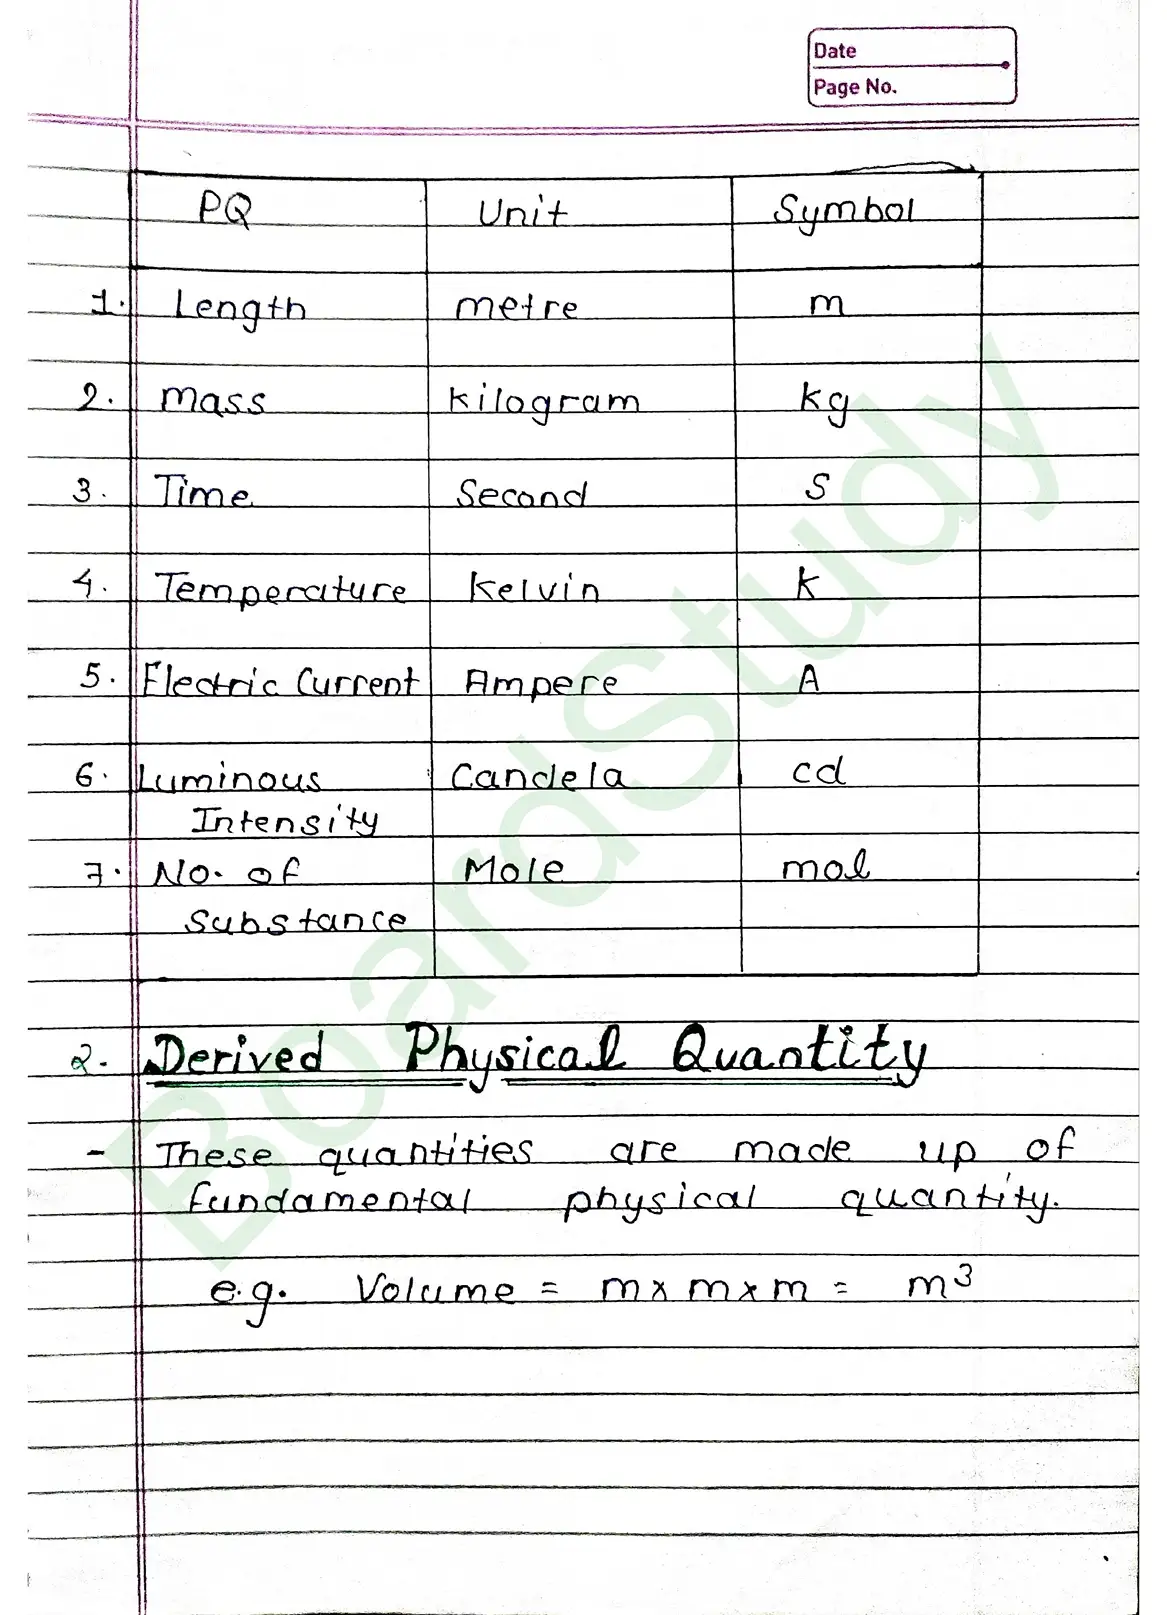 Date
Page No.
PQ Unit Symbol
1. Length metre m
2. Mass Kilogram kg
3. Time Second S
4. Temperature Kelvin K
5. Electric Current Ampere A
6. Luminous Candela cd
Intensity
7. No. of Mole mol
Substance
2. Derived Physical Quantity
- These quantities are made up of
fundamental physical quantity.
e.g. Volume = m x m x m = m³
BoardStudy